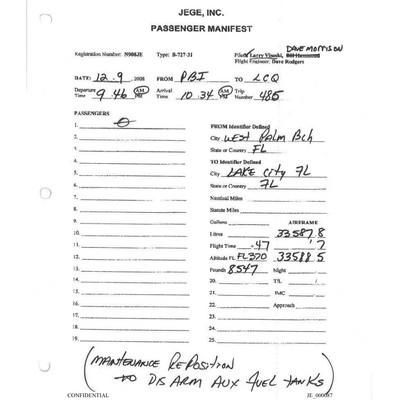 JEGE, INC.
PASSENGER MANIFEST
DAVE MORRISON
Registration Number: N908JE Type: B-727-31 Pilot: Larry Visoski,
Flight Engineer: Dave Rodgers
DATE: 12.9 2008 FROM PBI TO LCQ
Departure Time 9 46 AM PM Arrival Time 10 34 AM PM Trip Number 485
PASSENGERS
1.
2.
3.
4.
5.
6.
7.
8.
9.
10.
11.
12.
13.
14.
15.
16.
17.
18.
19.
FROM Identifier Defined
City WEST PALM BCH
State or Country FL
TO Identifier Defined
City LAKE CITY FL
State or Country FL
Nautical Miles
Statute Miles
Gallons AIRFRAME
Litres 33587 8
Flight Time .47 '7
Altitude FL FL370 33588 5
Pounds 8547 Night
20. T/L /
21. IMC
22. Approach
23.
24.
25.
(MAINTENANCE REPOSITION
TO DISARM AUX FUEL TANKS)
CONFIDENTIAL JE_000087